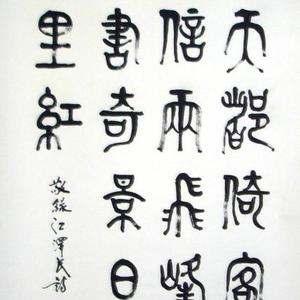 天都倚客
信兩飛峰
書奇景日
里紅
敬錄江澤民詩